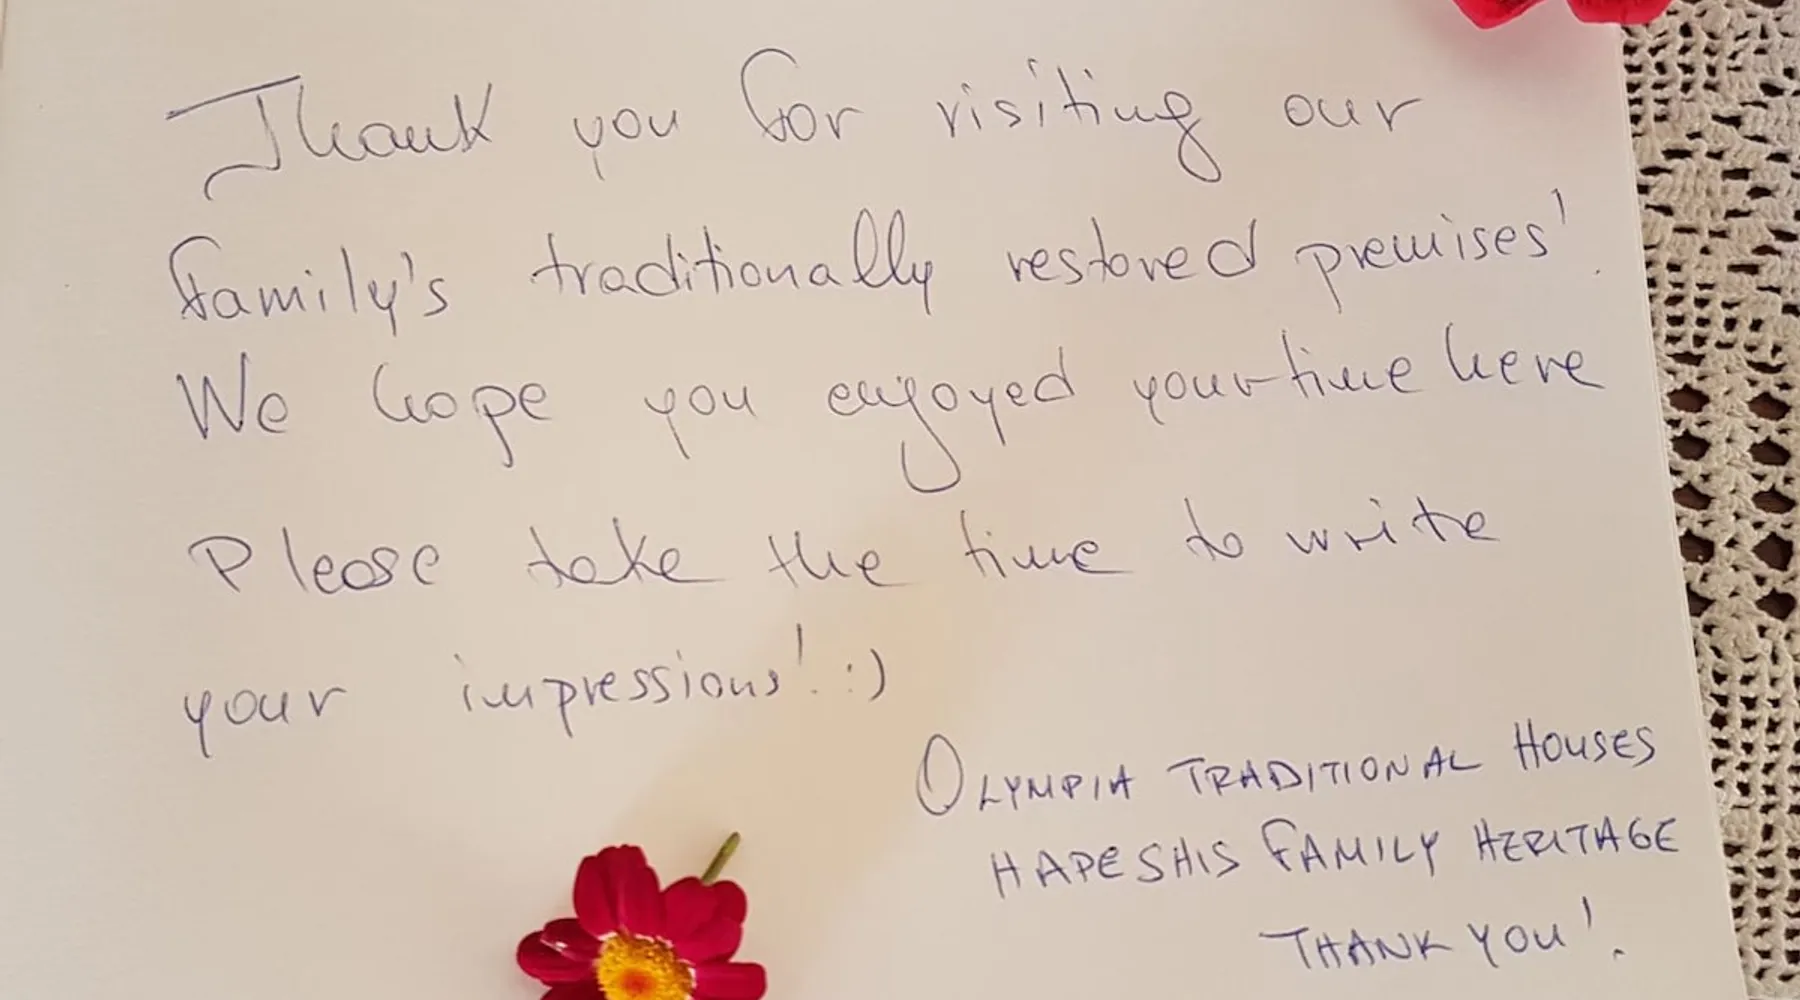 Thank you for visiting our
family's traditionally restored premises!
We hope you enjoyed your time here
Please take the time to write
your impressions! :)
OLYMPIA TRADITIONAL HOUSES
HAPESHIS FAMILY HERITAGE
THANK YOU!